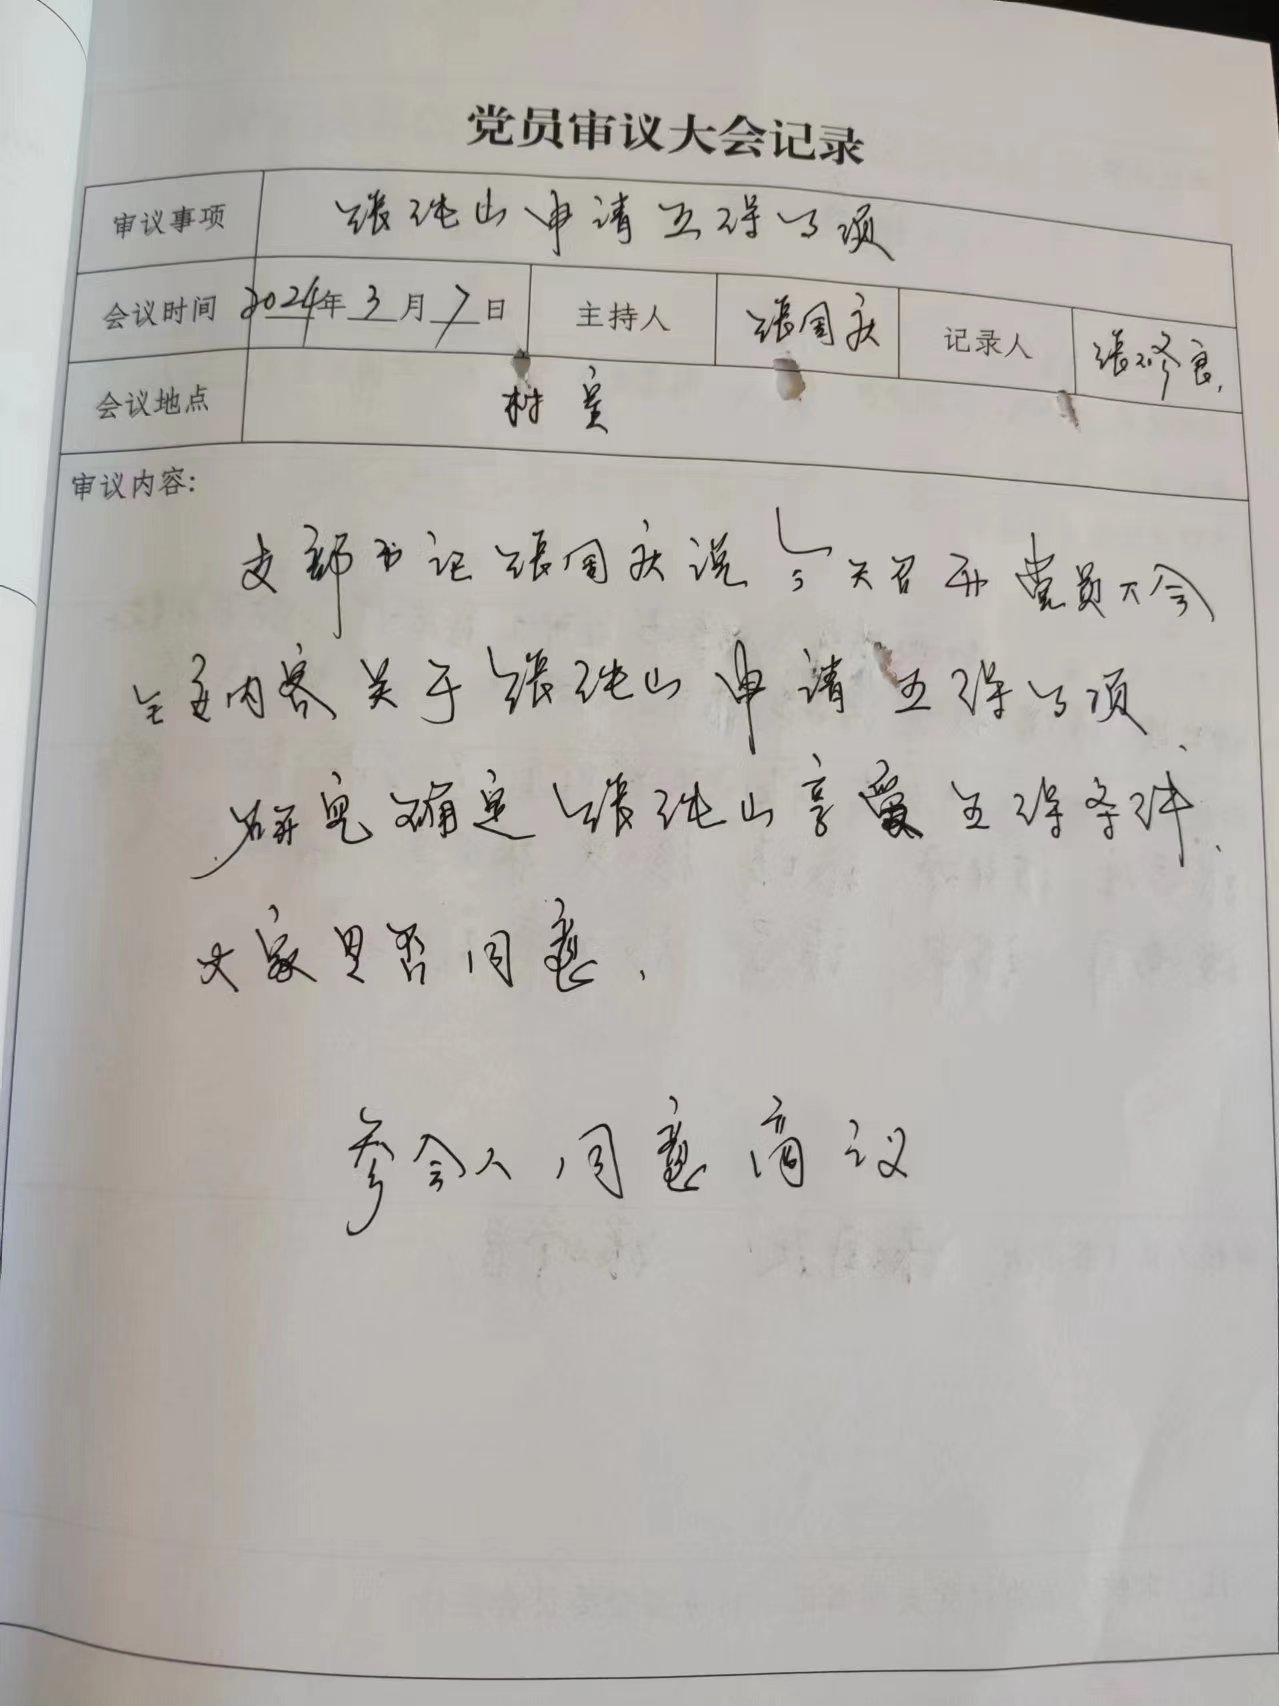 党员审议大会记录
审议事项 张纯山申请五保事项
会议时间 2024年3月7日 主持人 张国庆 记录人 张修良
会议地点 村室
审议内容:
支部书记张国庆说今天召开党员大会
主要内容关于张纯山申请五保事项
研究确定张纯山享受五保条件.
大家是否同意.
参会人同意商议